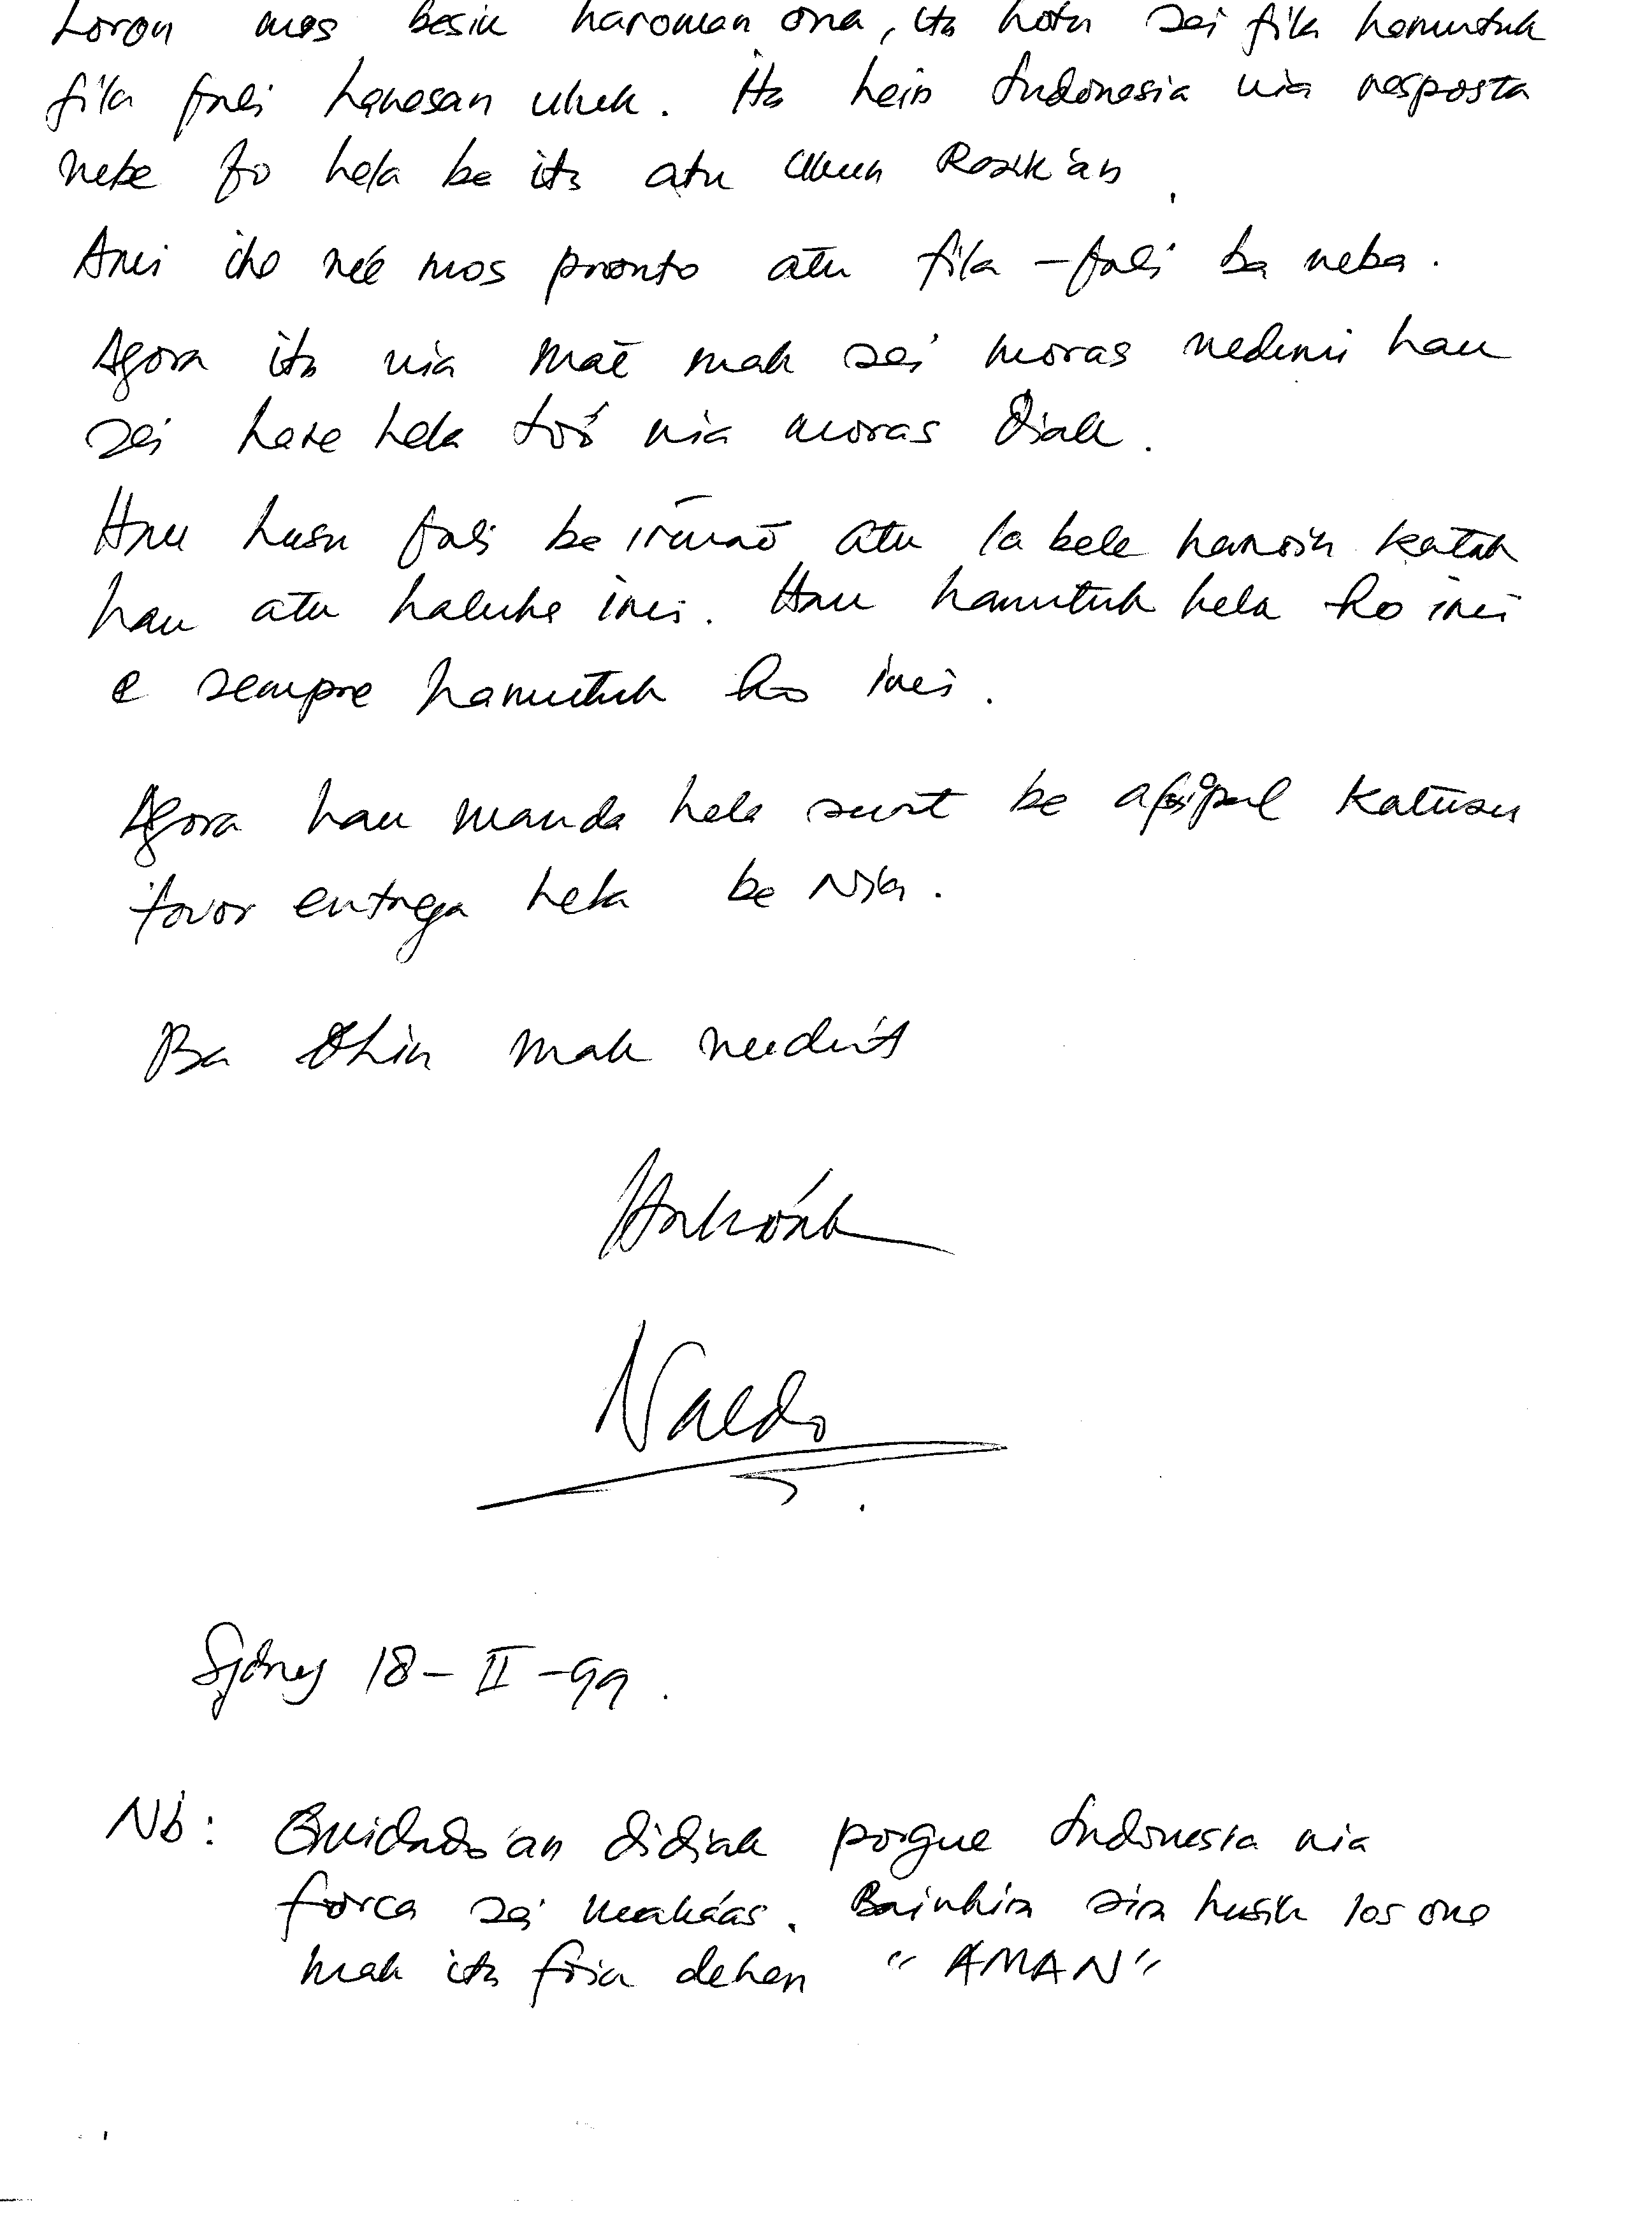 Loron mos besik haroman ona, ita hotu sei fila hamutuk
fila fali hanesan uluk. Ita hein Indonesia nia resposta
nebe fo hela ba ita atu Ukun Rasik'an
Ami iha neé mos pronto atu fila-fali ba neba.
Agora ita nia Maē mak sei moras nedunii hau
sei hare hela tó'o nia moras diak.
Hau husu fali ba irmaō atu la bele hanoin katak
hau atu haluha imi. Hau hamutuk hela ho imi
e sempre hamutuk ho imi.
Agora hau manda hela surat ba katuas
favor entrega hela ba Nia.
Ba Ohin mak needuít
Hakoák
Naldo
Sydney 18-II-99.
Nb: Cuidado'an didiak porque Indonesia nia
forca sei makáas. Bainhira sira husik los ona
mak ita foin dehan "AMAN"